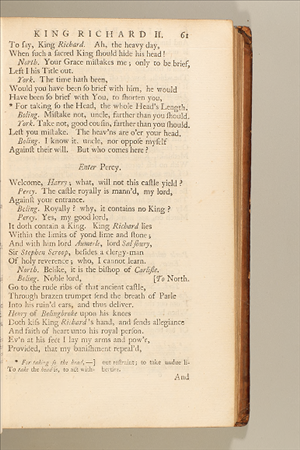 KING RICHARD II. 61
To say, King Richard. Ah, the heavy day,
When such a sacred King should hide his head!
North. Your Grace mistakes me; only to be brief,
Left I his Title out.
York. The time hath been,
Would you have been so brief with him, he would
Have been so brief with You, to shorten you,
* For taking so the Head, the whole Head's Length.
Boling. Mistake not, uncle, farther than you should.
York. Take not, good cousin, farther than you should.
Lest you mistake. The heav'ns are o'er your head.
Boling. I know it, uncle, nor oppose myself
Against their will. But who comes here?
Enter Percy.
Welcome, Harry; what, will not this castle yield?
Percy. The castle royally is mann'd, my lord,
Against your entrance.
Boling. Royally? why, it contains no King?
Percy. Yes, my good lord,
It doth contain a King. King Richard lies
Within the limits of yond lime and stone;
And with him lord Aumerle, lord Salisbury,
Sir Stephen Scroop, besides a clergy-man
Of holy reverence; who, I cannot learn.
North. Belike, it is the bishop of Carlisle.
Boling. Noble lord, [To North.
Go to the rude ribs of that ancient castle,
Through brazen trumpet send the breath of Parle
Into his ruin'd ears, and thus deliver.
Henry of Bolingbroke upon his knees
Doth kiss King Richard's hand, and sends allegiance
And faith of heart unto his royal person.
Ev'n at his feet I lay my arms and pow'r,
Provided, that my banishment repeal'd,
* For taking so the head,—] not restraint; to take undue li-
To take the head is, to act with- berties.
And